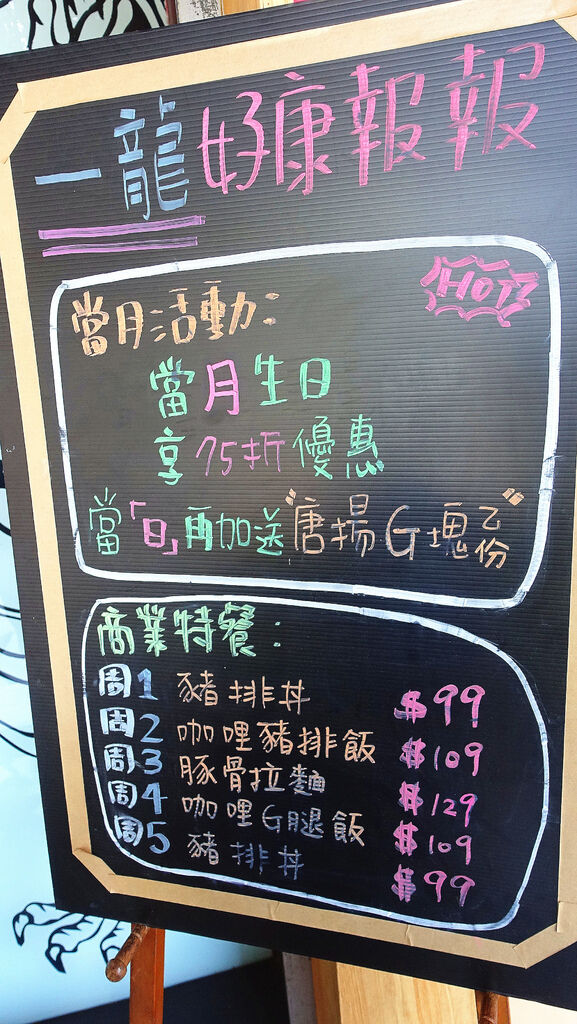 一龍好康報報
HOT
當月活動:
當月生日
享75折優惠
當「日」再加送"唐揚G塊乙份"
商業特餐:
周1 豬排丼 $99
周2 咖哩豬排飯 $109
周3 豚骨拉麵 $129
周4 咖哩G腿飯 $109
周5 豬排丼 $99